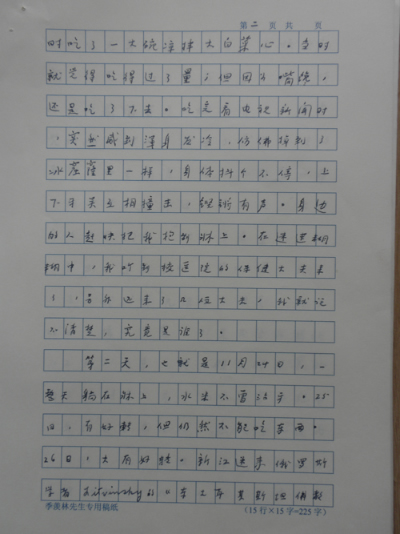 第二页共 页
时吃了一大碗凉拌大白菜心。当时
就觉得吃得过了量，但因为嘴馋，
还是吃了下去。吃完看电视新闻时
，突然感到浑身发冷，仿佛掉到了
冰窟窿里一样，身体抖个不停，上
下牙关互相撞击，铿锵有声。身边
的人赶快把我抬到床上。在迷迷糊
糊中，我听到校医院的保健大夫来
了，另外还来了几位大夫，我就记
不清楚，究竟是谁了。
第二天，也就是11月24日，一
整天躺在床上，水米不曾沾牙。25
日，有好转，但仍然不能吃东西。
26日，大有好转。新江送来俄罗斯
学者 Litvinsky 的《
季羡林先生专用稿纸
（15行×15字=225字）